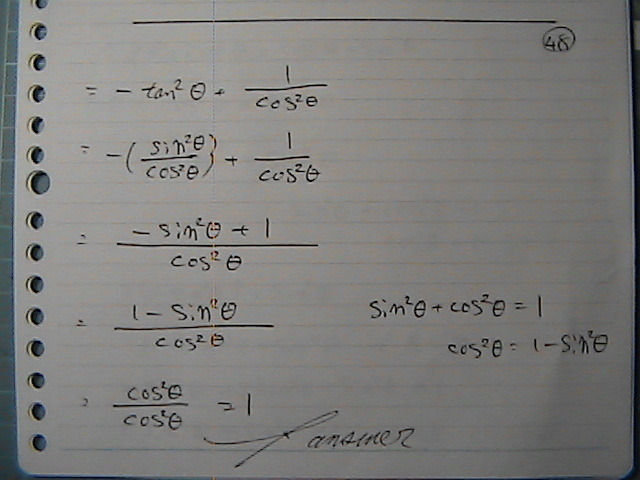 48
= - tan²θ + 1/cos²θ
= -(sin²θ/cos²θ) + 1/cos²θ
= (-sin²θ + 1)/cos²θ
= (1 - sin²θ)/cos²θ
sin²θ + cos²θ = 1
cos²θ = 1 - sin²θ
= cos²θ/cos²θ = 1
answer